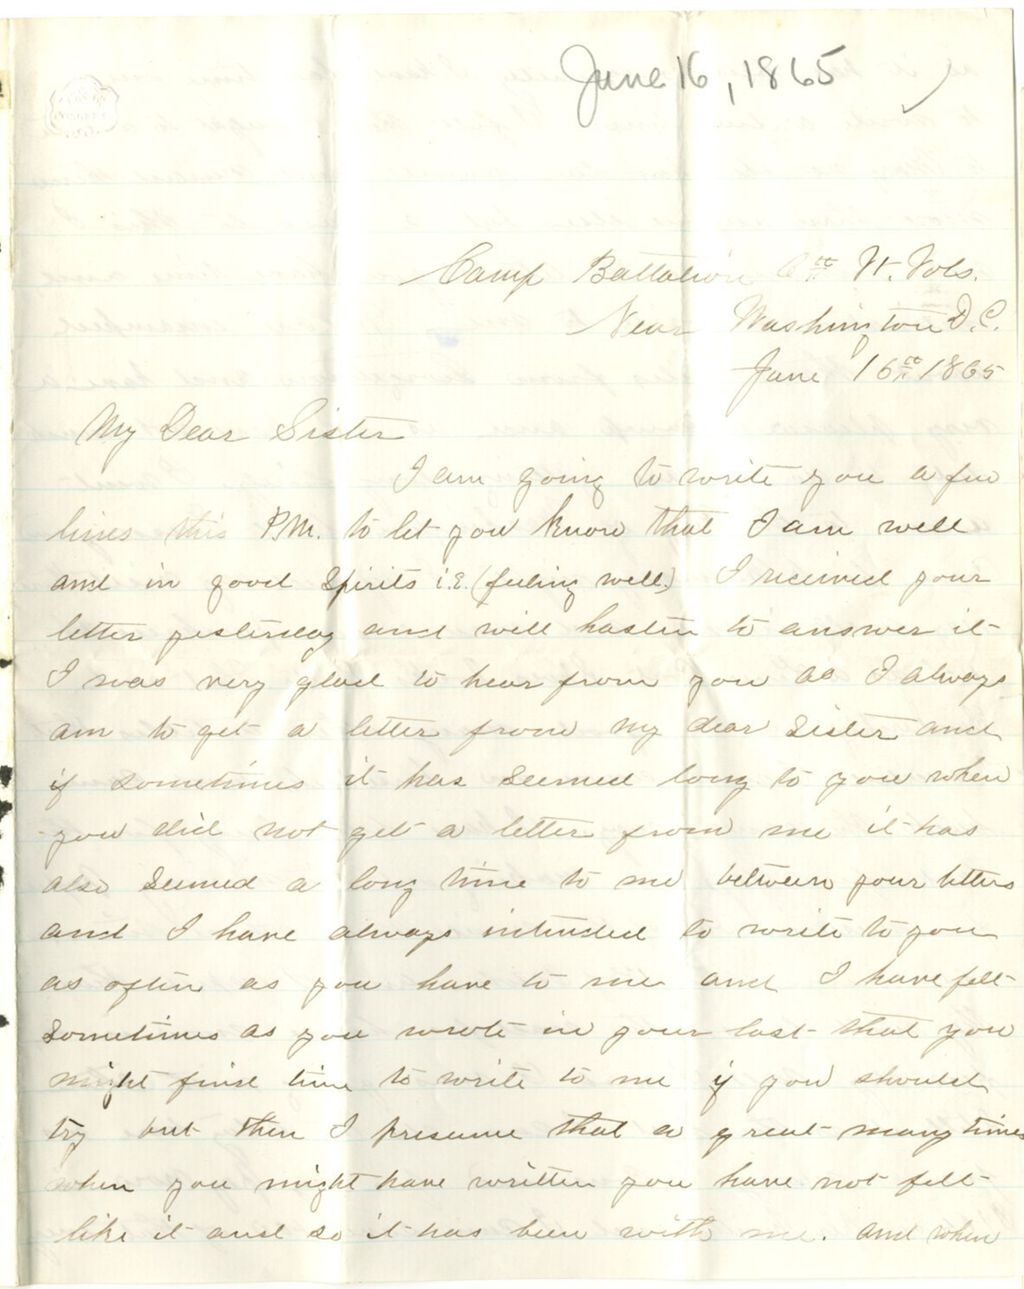 June 16, 1865
Camp Battalion 6th Vt. Vols.
Near Washington D.C.
June 16th 1865
My Dear Sister
I am going to write you a few
lines this P.M. to let you know that I am well
and in good Spirits i.E. (feeling well) I received your
letter yesterday and will hasten to answer it
I was very glad to hear from you as I always
am to get a letter from my dear Sister and
if sometimes it has seemed long to you when
you did not get a letter from me it has
also seemed a long time to me between your letters
and I have always intended to write to you
as often as you have to me and I have felt
sometimes as you wrote in your last that you
might find time to write to me if you should
try but then I presume that a great many times
when you might have written you have not felt
like it and so it has been with me. and when